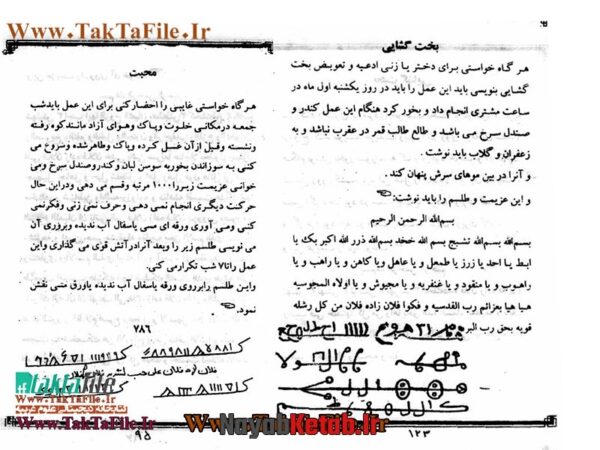 www.TakTaFile.Ir
www.TakTaFile.Ir
بخت گشایی
هرگاه خواستی برای دختر یا زنی ادعیه و تعویض بخت
گشایی بنویسی باید این عمل را باید در روز یکشنبه اول ماه در
ساعت مشتری انجام داد و بخور کرد هنگام این عمل کندر و
صندل سرخ می باشد و طالع طالب قمر در عقرب نباشد و به
زعفران و گلاب باید نوشت.
و آنرا در بین موهای سرش پنهان کند.
و این عزیمت و طلسم را باید نوشت:
بسم‌الله الرحمن الرحیم
بسم‌الله بسم‌الله تشبح بسم الله خخد بسم‌الله ذرر الله اکبر بک یا
ابط یا احد یا زرز یا طمعل و یا عاهل ویا کاهن و یا راهب و یا
راهوب و یا منقود و یا عنفریه و یا مجیوش و یا اولاه المجوسیه
هیا هیا بعزائم رب القدسیه و فکوا فلان زاده فلان من کل رشله
قویه بحق رب البر
۱۲۳
محبت
هرگاه خواستی غایبی را احضارکنی برای این عمل بایدشب
جمعه درمکانی خلوت وپاک وهوای آزاد مانندکوه رفته
ونشسته وقبل ازآن غسل کرده وپاک وطاهرشده وشروع می
کنی به سوزاندن بخوربه سوسن لبان وکندروصندل سرخ ومی
خوانی عزیمت زیررا۱۰۰۰ مرتبه وقسم می دهی ودراین حال
حرکت دیگری انجام نمی دهی وحرف نمی زنی وفکرنمی
کنی ومی آوری ورقه ای مسی یاسفال آب ندیده وبرروی آن
می نویسی طلسم زیر را وبعد آنرادرآتش قوی می گذاری واین
عمل راتا۷ شب تکرارمی کنی.
واین طلسم رابرروی ورقه یاسفال آب ندیده یاورق منی نقش
نمود.
۷۸۶
۹۵
taktafile
www.TakTaFile.Ir
www.TakTaFile.Ir
NayabKetab.Ir